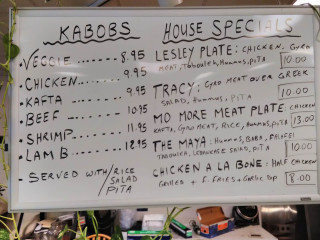 KABOBS
• VEGGIE ....... 8.95
• CHICKEN .... 9.95
• KAFTA ...... 9.95
• BEEF ....... 10.95
• SHRIMP ..... 11.95
• LAMB ....... 12.95
- SERVED WITH / RICE
SALAD
PITA
HOUSE SPECIALS
LESLEY PLATE: CHICKEN, GYRO
MEAT, Tabouleh, Hummos, PITA 10.00
TRACY: GYRO MEAT OVER GREEK
SALAD, HUMMOS, PITA 10.00
MO MORE MEAT PLATE: CHICKEN
KAFTA, GYRO MEAT, RICE, Hummos, PITA 13.00
THE MAYA: HUMMOS, BABA, FALAFEL
TABOULEH, LEBANESE SALAD, PITA 10.00
CHICKEN A LA BONE: HALF CHICKEN
Grilled + F. FRIES + Garlic Dip 8.00